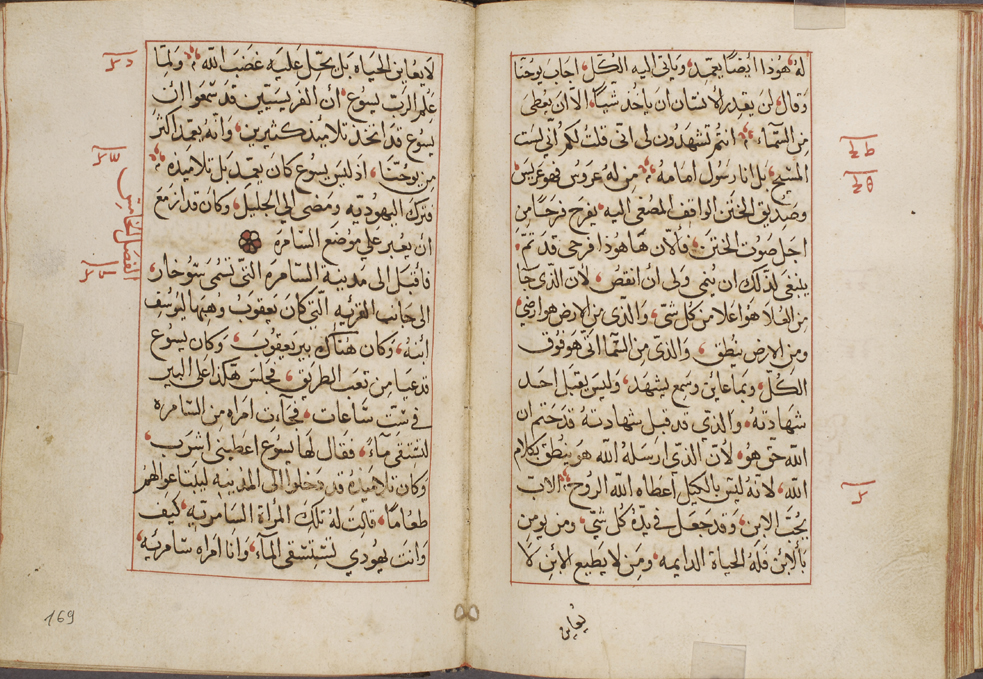 له هوذا ايضًا يعمد، وياتى اليه الكل، اجاب يوحنا
وقال، لن يقدر الانسان ان ياخد شياً، الا ان يعطى
من السمآء، انتم تشهدون لى انى قلت لكم انى لست
المسيح، بل انا رسول امامه، من له عروس فهو عريس
وصديق الختن الواقف المصغى اليه، يفرح فرحًا من
اجل صوت الختن، فالان هاهوذا فرحى قد تم،
ينبغى لذلك ان ينمى، ولى ان انقص، لان الذى جا
من العلا هو اعلا من كل شى، والذى من الارض هو ارضي
ومن الارض ينطق، والذى من السما اتى هو فوق
الكل، وبما عاين وسمع يشهد، وليس يقبل احد
شهادته، والذى قد قبل شهادته قد ختم ان
الله حق هو، لان الذى ارسله الله هو ينطق بكلام
الله، لانه ليس بالكيل اعطاه الله الروح، الاب
يحب الابن، وقد جعل في يده كل شى، ومن يومن
بالابن فله الحياة الدايمه، ومن لا يطيع الابن لا
يعاين
لا يعاين الحياه بل يحل عليه غضب الله، ولما
علم الرب يسوع، ان الفريسيين قد سمعوا ان
يسوع قد اتخذ تلاميذ كثيرين، وانه يعمد اكثر
من يوحنا، اذ ليس يسوع كان يعمد بل تلاميذه،
فترك اليهوديه ومضى الى الجليل، وكان قد ازمع
ان يعبر على موضع السامره
الفصل الخامس
فاقبل الى مدينة السامره التى تسمى سوخار،
الى جانب القريه التى كان يعقوب وهبها ليوسف
ابنه، وكان هناك بير يعقوب، وكان يسوع
قد عيا من تعب الطريق، فجلس هكذا على البير
في ست ساعات، فجآت امراه من السامره
لتستقى مآءً، فقال لها يسوع اعطينى اشرب،
وكان تلاميذه قد دخلوا الى المدينه ليبتاعوا لهم
طعامًا، قالت له تلك المراة السامريه، كيف
وانت يهودي تستسقى المآ، وانا امراه سامريه،
169